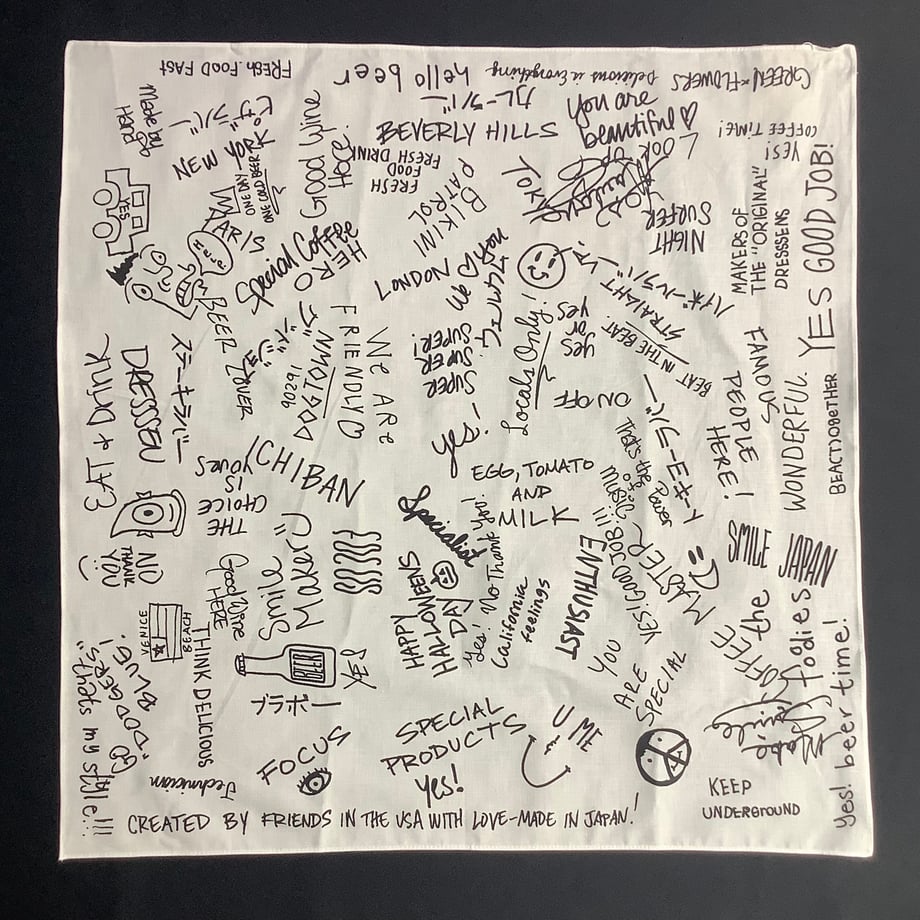 FRESH FOOD FAST
hello beer
Delicious is Everything
GREEN & FLOWERS
Made by
Hand
ピザラバー
カレーラバー
you are
beautiful
COFFEE TIME!
NEW YORK
ONE DAY
ONE COLD BEER
Good Wine
Here.
BEVERLY HILLS
FRESH
FOOD
FRESH DRINK
LOOK UP
YES!
YES GOOD JOB!
YES
WARIS
BIKINI
PATROL
TOKYO
NIGHT
SURFER
MAKERS OF
THE "ORIGINAL"
DRESSSENS
Special Coffee
HERO
LONDON
We ♡ you
BEER LOVER
ハイボールラバー
STRAIGHT
BEAT IN THE BEAT.
EAT & DRINK
DRESSSEN
ステーキラバー
DOGTOWN
90291
FRIENDLY
WE ARE
SUPER
SUPER
SUPER!
Locals Only!
yes
or
yes
FAMOUS
PEOPLE
HERE!
WONDERFUL
BEACTJOBETHER
ON OFF
yes!
ICHIBAN
THE
CHOICE
IS
YOURS
EGG, TOMATO
AND
MILK
That's the
Power
of
music
NO
THANK
YOU
Specialist
Smile
Maker
Good Wine
HERE
HAPPY
HALLOWEENS
DAY
Yes! No Thank you!
California
feelings
ENTHUSIAST
YES! GOOD JOB!!!
MASTER
SMILE JAPAN
VENICE
BEACH
THINK DELICIOUS
BEER
ブラボー
YOU
ARE
SPECIAL
COFFEE
the
foodies
Make
smile
GO
"DODGERS"
BLUE!
"thats my style!!!
Technician
FOCUS
SPECIAL
PRODUCTS
Yes!
KEEP
UNDERGROUND
yes! beer time!
CREATED BY FRIENDS IN THE USA WITH LOVE-MADE IN JAPAN!